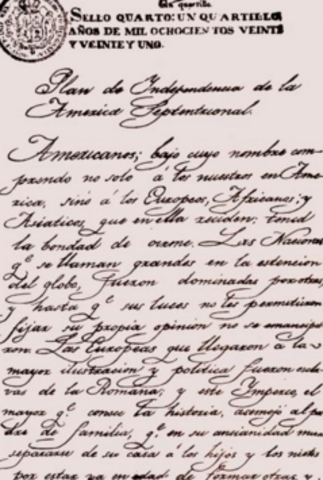 Un quartillo
SELLO QUARTO: UN QUARTILLO
AÑOS DE MIL OCHOCIENTOS VEINTE
Y VEINTE Y UNO.
Plan de Independencia de la
America Septentrional.
Americanos; bajo cuyo nombre com-
prendo no solo á los nuestros en Ame-
rica, sinó á los Europeos, Africanos, y
Asiaticos, que en ella reciden: tened
la bondad de oirme. Las Naciones
q.e se llaman grandes en la estencion
del globo, fueron dominadas por otras,
y hasta q.e sus luces no les permitieron
fijar su propia opinion no se emancipa-
ron. Las Europeas que llegaron á la
mayor ilustracion y politica fueron escla-
vas de la Romana; y este Ymperio, el
mayor q.e conose la historia, asemejó al pa-
dre de familia, q.e en su ancianidad mira
separarse de su casa á los hijos y los nietos
por estar ya en edad de formar otras, y